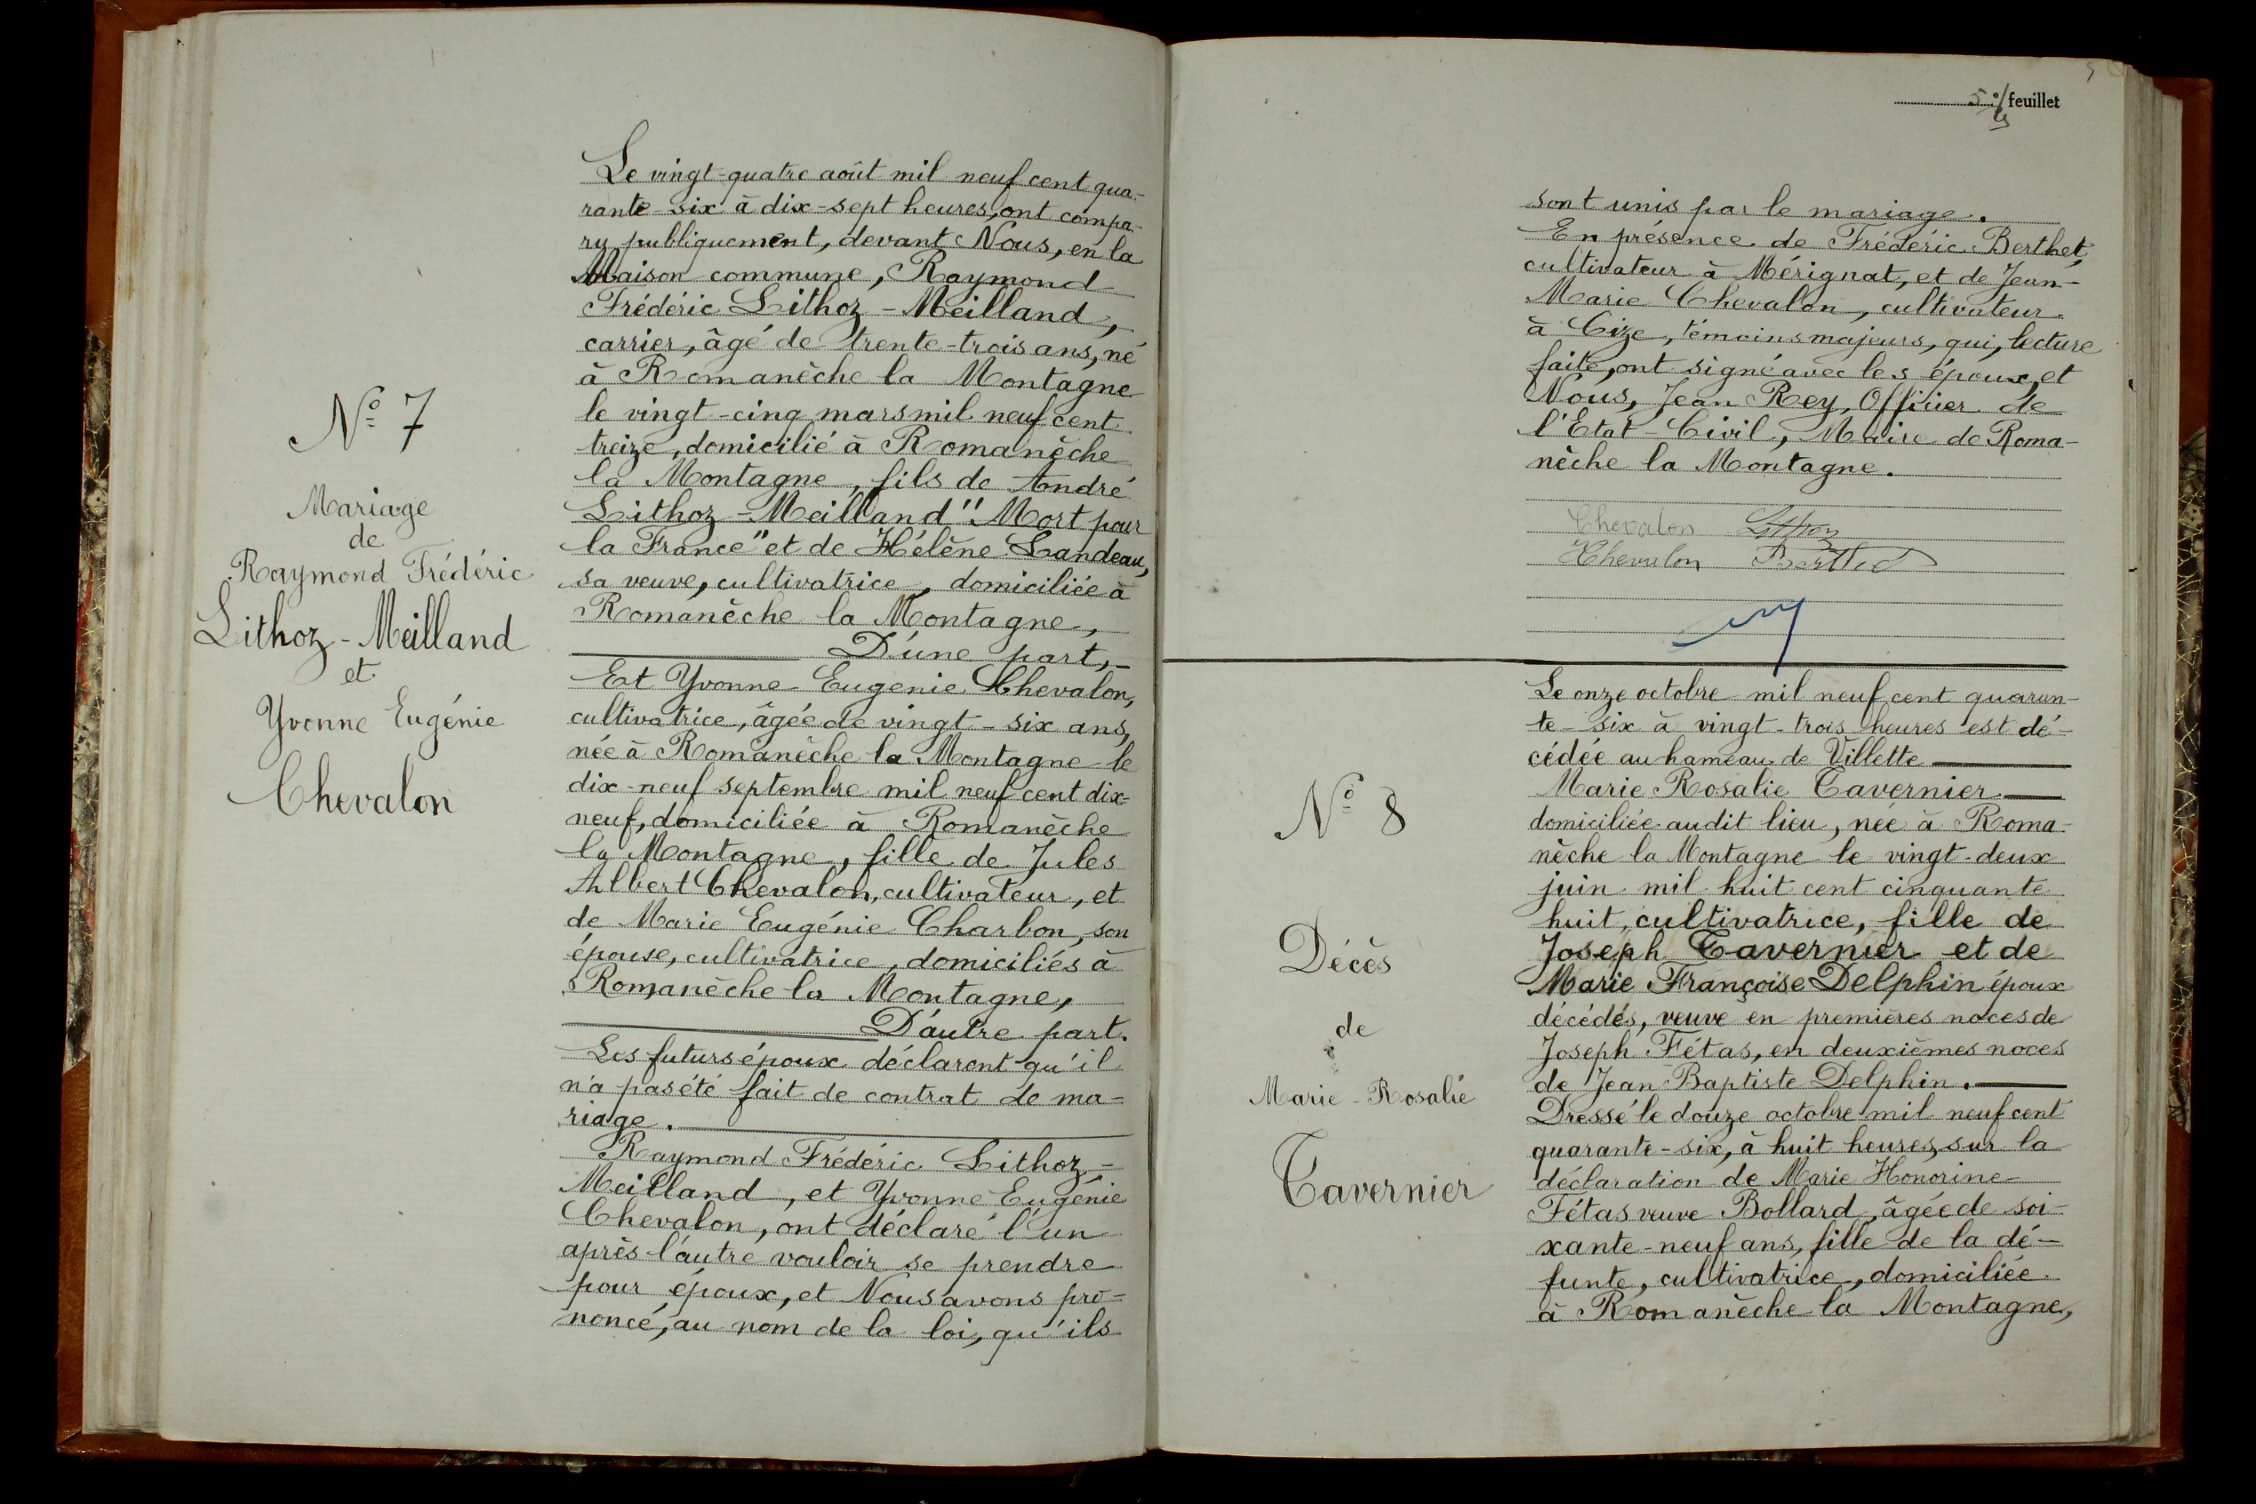 N° 7
Mariage
de
Raymond Frédéric
Lithoz-Meilland
et
Yvonne Eugénie
Chevalon
Le vingt-quatre août mil neuf cent qua-
rante-six à dix-sept heures, ont compa-
ru publiquement, devant Nous, en la
Maison commune, Raymond
Frédéric Lithoz-Meilland,
carrier, âgé de trente-trois ans, né
à Romanèche la Montagne
le vingt-cinq mars mil neuf cent
treize, domicilié à Romanèche
la Montagne, fils de André
Lithoz-Meilland "Mort pour
la France" et de Hélène Landeau,
sa veuve, cultivatrice, domiciliée à
Romanèche la Montagne,
D'une part,
Et Yvonne Eugenie Chevalon,
cultivatrice, âgée de vingt-six ans,
née à Romanèche la Montagne le
dix-neuf septembre mil neuf cent dix-
neuf, domiciliée à Romanèche
la Montagne, fille de Jules
Albert Chevalon, cultivateur, et
de Marie Eugénie Charbon, son
épouse, cultivatrice, domiciliés à
Romanèche la Montagne,
D'autre part.
Les futurs époux déclarent qu'il
n'a pas été fait de contrat de ma-
riage.
Raymond Frédéric Lithoz-
Meilland, et Yvonne Eugénie
Chevalon, ont déclaré l'un
après l'autre vouloir se prendre
pour époux, et Nous avons pro-
noncé, au nom de la loi, qu'ils
5 feuillet
sont unis par le mariage.
En présence de Frédéric Berthet,
cultivateur à Mérignat, et de Jean-
Marie Chevalon, cultivateur
à Cize, témoins majeurs, qui, lecture
faite, ont signé avec les époux et
Nous, Jean Rey, Officier de
l'Etat-Civil, Maire de Roma-
nèche la Montagne.
Chevalon Lithoz
Chevalon Berthet
N° 8
Décès
de
Marie-Rosalie
Tavernier
Le onze octobre mil neuf cent quaran-
te-six à vingt-trois heures est dé-
cédée au hameau de Villette
Marie Rosalie Tavernier
domiciliée audit lieu, née à Roma-
nèche la Montagne le vingt-deux
juin mil huit cent cinquante
huit, cultivatrice, fille de
Joseph Tavernier et de
Marie Françoise Delphin époux
décédés, veuve en premières noces de
Joseph Fétas, en deuxièmes noces
de Jean Baptiste Delphin.
Dressé le douze octobre mil neuf cent
quarante-six, à huit heures, sur la
déclaration de Marie Honorine
Fétas veuve Bollard, âgée de soi-
xante-neuf ans, fille de la dé-
funte, cultivatrice, domiciliée
à Romanèche la Montagne,